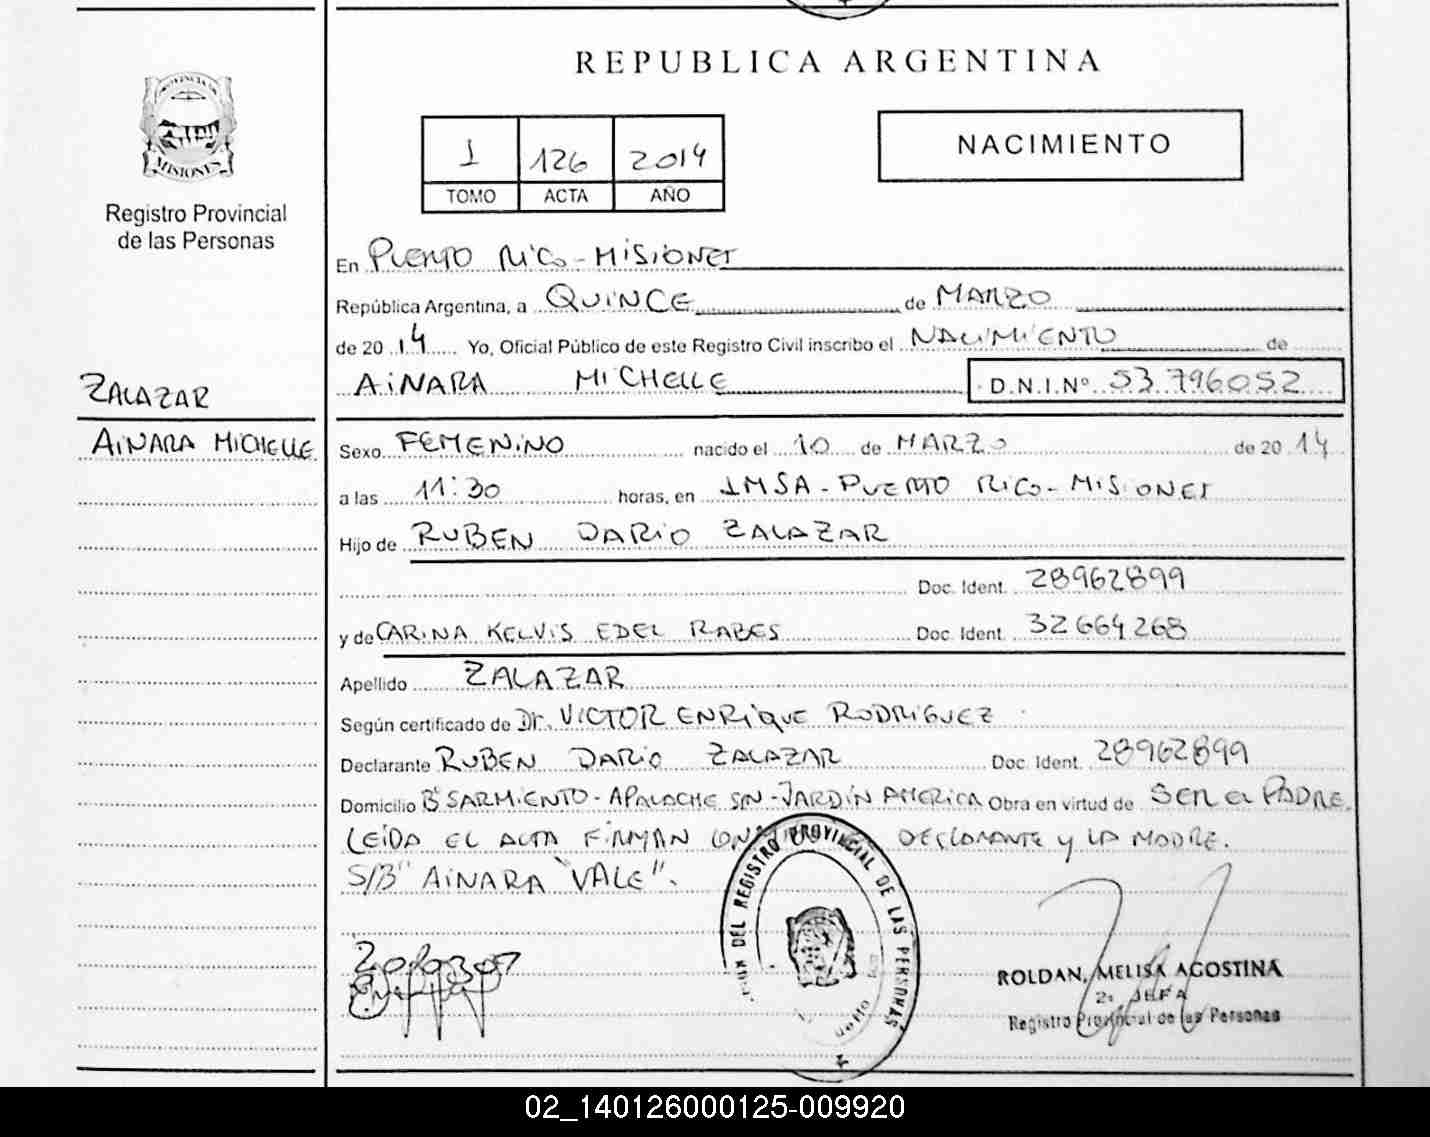 REPUBLICA ARGENTINA
PROVINCIA DE
MISIONES
Registro Provincial
de las Personas
1 126 2014
TOMO ACTA AÑO
NACIMIENTO
En PUERTO RICO - MISIONES
República Argentina, a QUINCE de MARZO
de 20 14 Yo, Oficial Público de este Registro Civil inscribo el NACIMIENTO de
AINARA MICHELLE D.N.I.Nº 53.796052
ZALAZAR
AINARA MICHELLE
Sexo FEMENINO nacido el 10 de MARZO de 20 14
a las 11:30 horas, en IMSA - PUERTO RICO - MISIONES
Hijo de RUBEN DARIO ZALAZAR
Doc. Ident. 28962899
y de CARINA KELVIS EDEL RABES Doc. Ident. 32664268
Apellido ZALAZAR
Según certificado de Dr. VICTOR ENRIQUE RODRIGUEZ
Declarante RUBEN DARIO ZALAZAR Doc. Ident. 28962899
Domicilio Bº SARMIENTO - APALACHE S/N - JARDIN AMERICA Obra en virtud de SER EL PADRE.
LEIDA EL ACTA FIRMAN DECLARANTE Y LA MADRE.
S/B" AINARA "VALE".
DEL REGISTRO PROVINCIAL DE LAS PERSONAS
ROLDAN, MELISA AGOSTINA
2º JEFA
Registro Provincial de las Personas
02_140126000125-009920